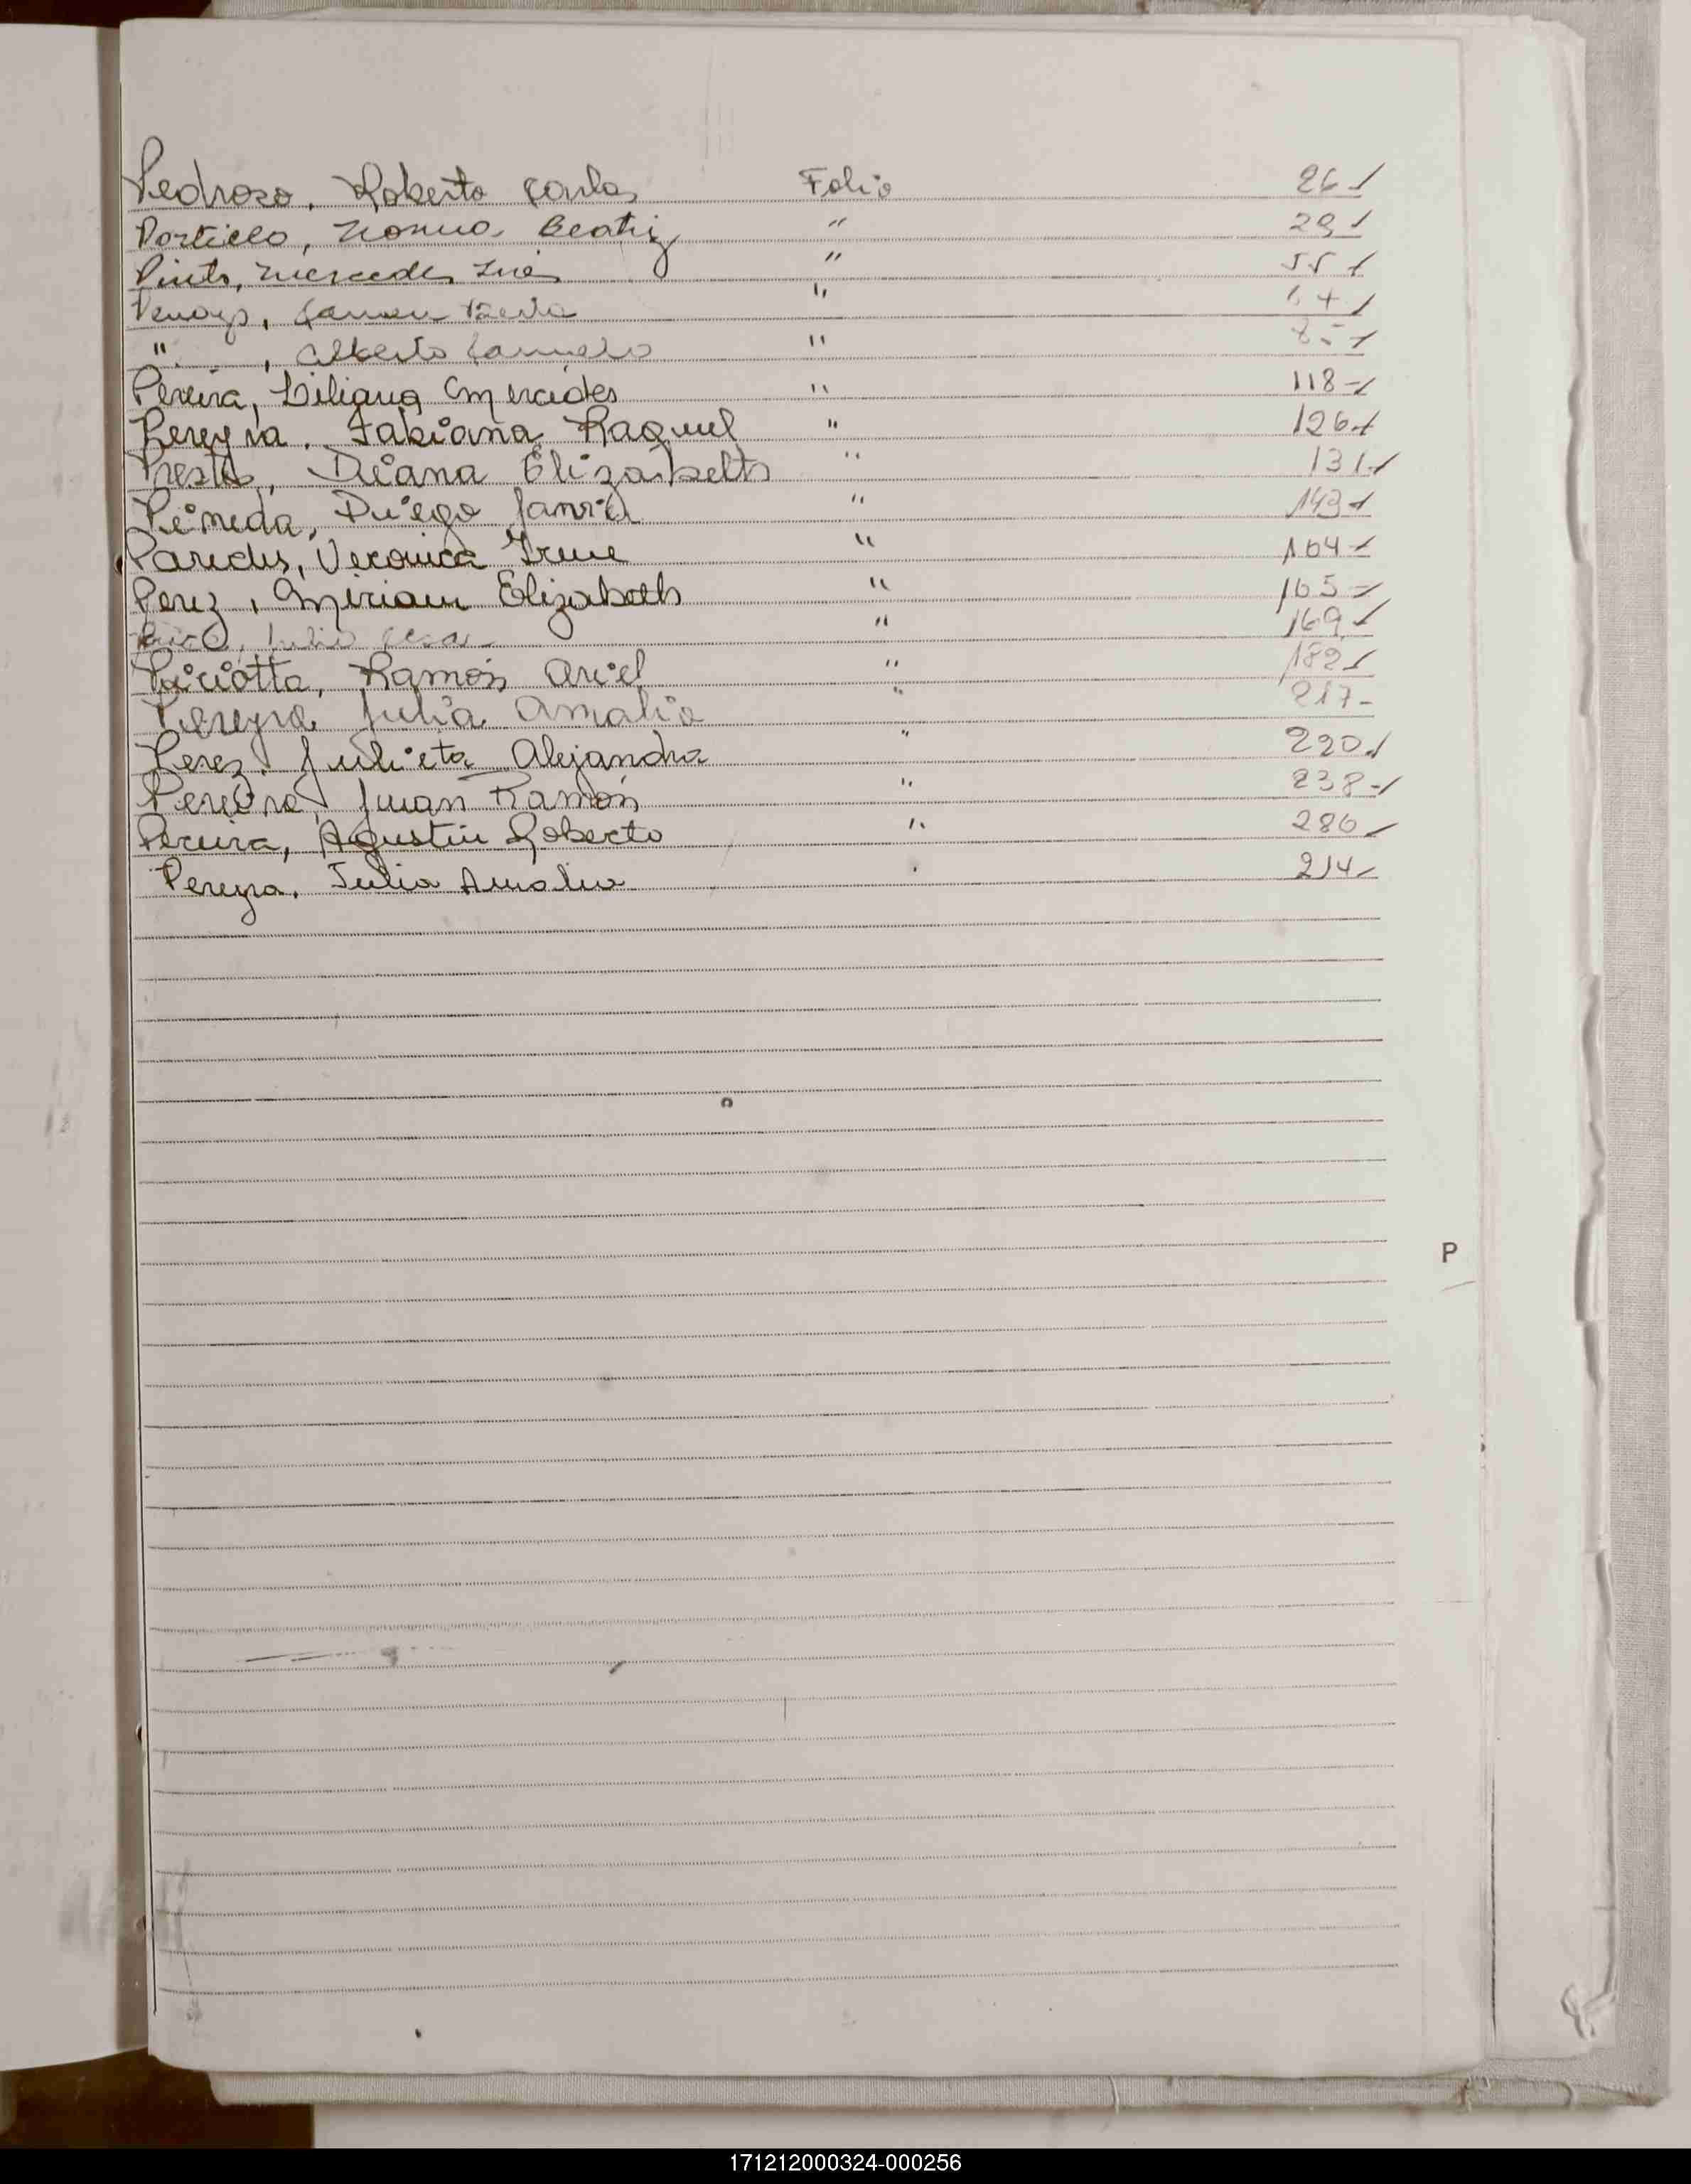 Pedrozo, Roberto Carlos Folio 26
Portillo, Norma Beatriz " 29
Pinto, Mercedes Inés " 55
Carmen "
" , Alberto "
Pereira, Liliana Mercedes " 118
Pereyra, Fabiana Raquel " 126
Prestes, Diana Elizabeth " 131
Pineda, Diego Javier " 143
Paredes, Veronica Irene " 164
Perez, Miriam Elizabeth " 165
Julio Cesar " 169
Piciotta, Ramón Ariel " 182
Pereyra Julia Amalia " 217
Perez, Julieta Alejandra " 220
Pereira, Juan Ramón " 238
Pereira, Agustin Roberto " 286
Pereyra, Julia Amalia 214
P
171212000324-000256